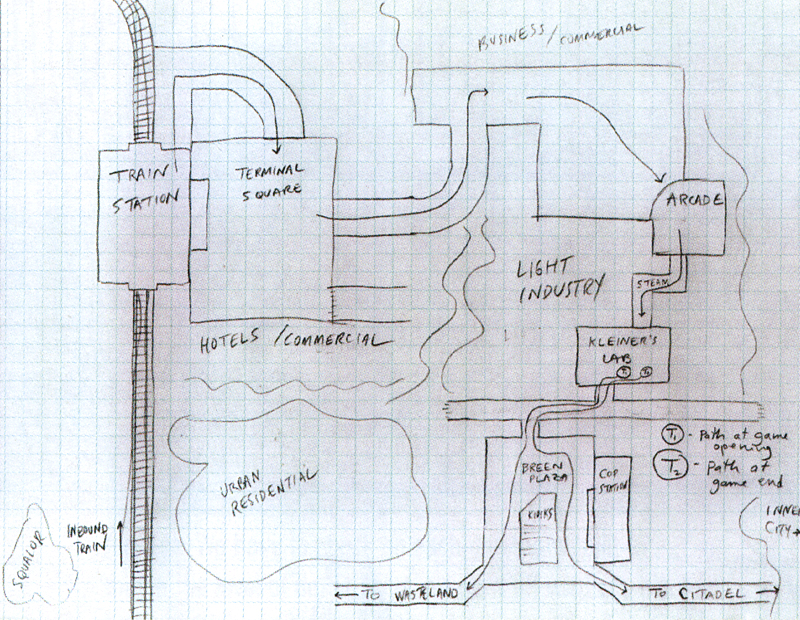 BUSINESS/COMMERCIAL
TRAIN
STATION
TERMINAL
SQUARE
ARCADE
LIGHT
INDUSTRY
STEAM
HOTELS /COMMERCIAL
KLEINER'S
LAB
T1
T2
T1 - Path at game
opening
T2 - Path at
game end
URBAN
RESIDENTIAL
BREEN
PLAZA
COP
STATION
KIOSKS
INNER
CITY→
INBOUND
TRAIN
SQUALOR
← TO WASTELAND
TO CITADEL →